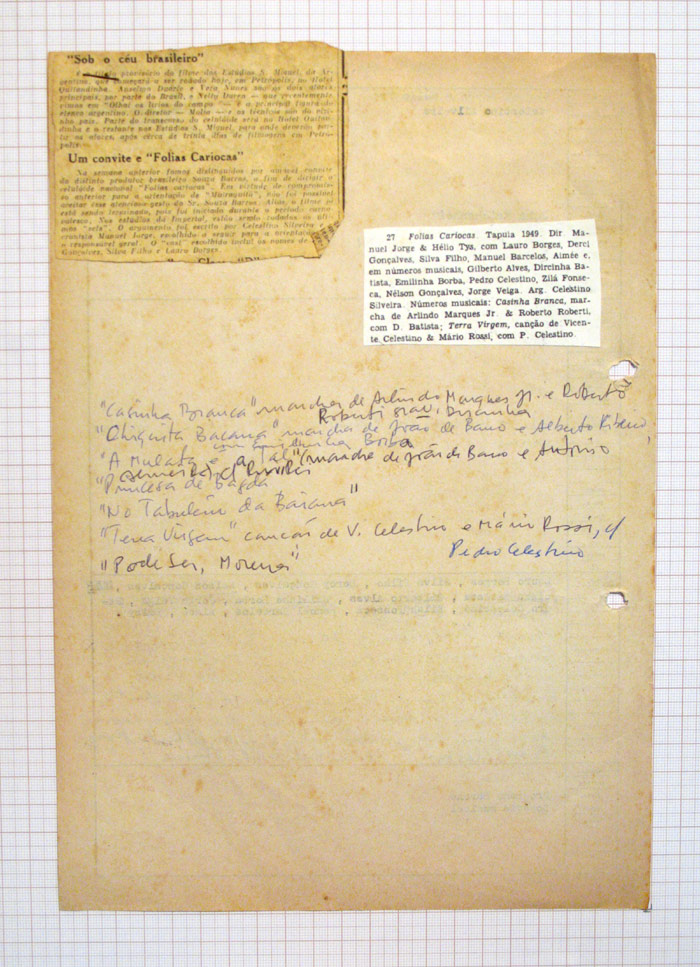 "Sob o céu brasileiro"
é o título provisório do filme dos Estúdios S. Miguel, de Ar-
gentina, que começará a ser rodado hoje, em Petrópolis, no Hotel
Quitandinha. Anselmo Duarte e Vera Nunes são os dois
principais, por parte do Brasil, e Nelly Daren — que recentemente
vimos em "Olhai os lirios do campo" — é a principal figura do
elenco argentino. O diretor — — e os técnicos são do
país. Parte do transcurso, do celuloide será no Hotel Quitan-
dinha e o restante nos Estúdios S. Miguel, para onde deverão par-
tir os nossos, após cerca de trinta dias de filmagens em Petró-
polis.
Um convite e "Folias Cariocas"
Na semana anterior fomos distinguidos por amavel convite
do distinto produtor brasileiro Souza Barros, a fim de
celuloide nacional "Folias cariocas". Em virtude de compromisso
anterior para a "Maternquito", não foi possivel
aceitar esse atencioso gesto do Sr. Souza Barros. Aliás, o filme já
está sendo terminado, pois foi iniciado durante o periodo carna-
valesco. Nos estúdios da Imperial, estão sendo rodados os últi-
mos "sets". O argumento foi escrito por Celestino Silveira e
Manuel Jorge, escolhido
o responsavel geral. O "cast" escolhido inclui os nomes de
Gonçalves, Silva Filho e Lauro Borges.
27 Folias Cariocas. Tapuia 1949. Dir. Ma-
nuel Jorge & Hélio Tys, com Lauro Borges, Derci
Gonçalves, Silva Filho, Manuel Barcelos, Aimée e,
em números musicais, Gilberto Alves, Dircinha Ba-
tista, Emilinha Borba, Pedro Celestino, Zilá Fonse-
ca, Nélson Gonçalves, Jorge Veiga. Arg. Celestino
Silveira. Números musicais: Casinha Branca, mar-
cha de Arlindo Marques Jr. & Roberto Roberti,
com D. Batista; Terra Virgem, canção de Vicen-
te Celestino & Mário Rossi, com P. Celestino.
"Casinha Branca" marcha de Arlindo Marques Jr. e Roberto
Roberti Dircinha
"Chiquita Bacana" marcha de João de Barro e Alberto Ribeiro,
com Emilinha Borba
"A Mulata é a Tal" (marcha de João de Barro e Antonio
Almeida) c/
"Princesa de Bagdá"
"No Tabuleiro da Baiana"
"Terra Virgem" canção de V. Celestino e Mário Rossi, c/
Pedro Celestino
"Pode Ser, Morena"